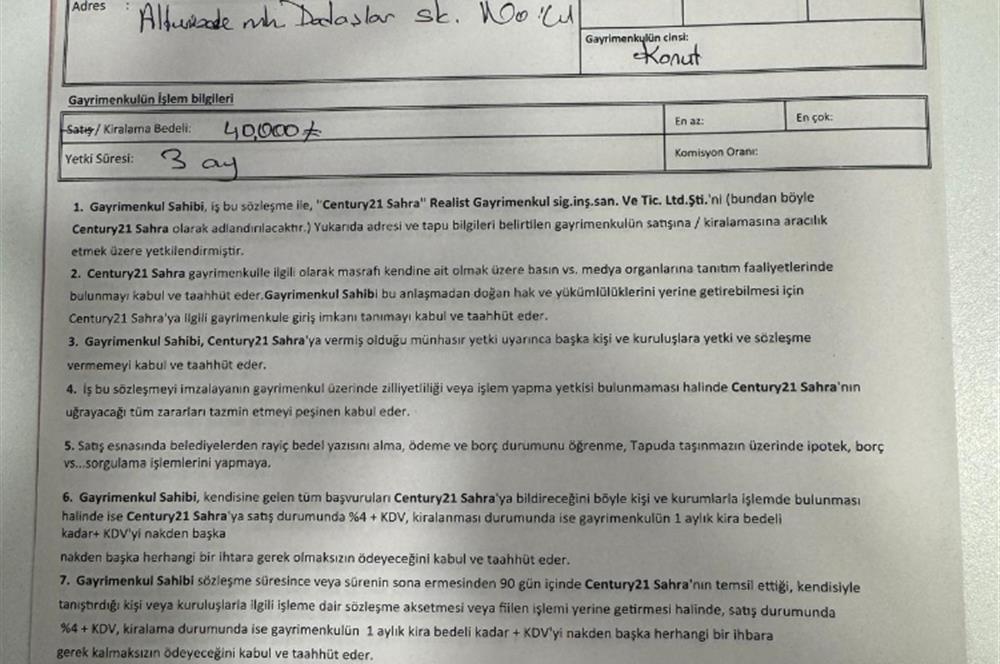 Adres : Altunizade mh Dadaşlar sk. No:
Gayrimenkulün cinsi:
Konut
Gayrimenkulün İşlem bilgileri
Satış / Kiralama Bedeli: 40,000 ₺ En az: En çok:
Yetki Süresi: 3 ay Komisyon Oranı:
1. Gayrimenkul Sahibi, iş bu sözleşme ile, "Century21 Sahra" Realist Gayrimenkul sig.inş.san. Ve Tic. Ltd.Şti.'ni (bundan böyle
Century21 Sahra olarak adlandırılacaktır.) Yukarıda adresi ve tapu bilgileri belirtilen gayrimenkulün satışına / kiralamasına aracılık
etmek üzere yetkilendirmiştir.
2. Century21 Sahra gayrimenkulle ilgili olarak masrafı kendine ait olmak üzere basın vs. medya organlarına tanıtım faaliyetlerinde
bulunmayı kabul ve taahhüt eder.Gayrimenkul Sahibi bu anlaşmadan doğan hak ve yükümlülüklerini yerine getirebilmesi için
Century21 Sahra'ya ilgili gayrimenkule giriş imkanı tanımayı kabul ve taahhüt eder.
3. Gayrimenkul Sahibi, Century21 Sahra'ya vermiş olduğu münhasır yetki uyarınca başka kişi ve kuruluşlara yetki ve sözleşme
vermemeyi kabul ve taahhüt eder.
4. İş bu sözleşmeyi imzalayanın gayrimenkul üzerinde zilliyetliliği veya işlem yapma yetkisi bulunmaması halinde Century21 Sahra'nın
uğrayacağı tüm zararları tazmin etmeyi peşinen kabul eder.
5. Satış esnasında belediyelerden rayiç bedel yazısını alma, ödeme ve borç durumunu öğrenme, Tapuda taşınmazın üzerinde ipotek, borç
vs...sorgulama işlemlerini yapmaya.
6. Gayrimenkul Sahibi, kendisine gelen tüm başvuruları Century21 Sahra'ya bildireceğini böyle kişi ve kurumlarla işlemde bulunması
halinde ise Century21 Sahra'ya satış durumunda %4 + KDV, kiralanması durumunda ise gayrimenkulün 1 aylık kira bedeli
kadar+ KDV'yi nakden başka
nakden başka herhangi bir ihtara gerek olmaksızın ödeyeceğini kabul ve taahhüt eder.
7. Gayrimenkul Sahibi sözleşme süresince veya sürenin sona ermesinden 90 gün içinde Century21 Sahra'nın temsil ettiği, kendisiyle
tanıştırdığı kişi veya kuruluşlarla ilgili işleme dair sözleşme aksetmesi veya fiilen işlemi yerine getirmesi halinde, satış durumunda
%4 + KDV, kiralama durumunda ise gayrimenkulün 1 aylık kira bedeli kadar + KDV'yi nakden başka herhangi bir ihbara
gerek kalmaksızın ödeyeceğini kabul ve taahhüt eder.